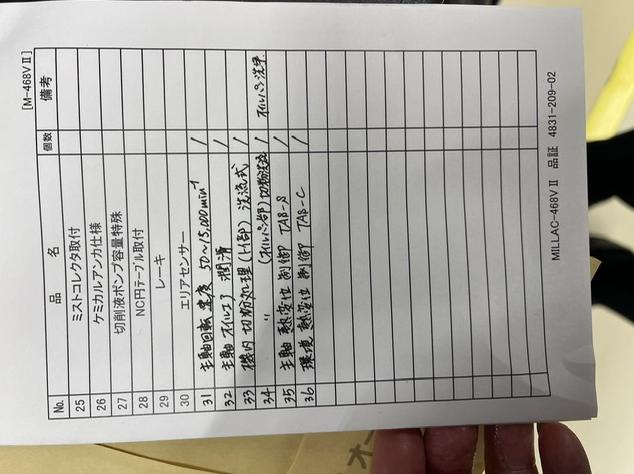 [M-468VⅡ]
No. 品 名 個数 備考
25 ミストコレクタ取付
26 ケミカルアンカ仕様
27 切削液ポンプ容量特殊
28 NC円テーブル取付
29 レーキ
30 エリアセンサー
31 主軸回転速度 50~15,000min⁻¹ /
32 主軸オイルエア潤滑 /
33 機内切粉処理(上部)洗流式 /
34 〃 (オイルパン部)切粉洗流 / オイルパン洗浄
35 主軸熱変位制御 TAS-S /
36 環境熱変位制御 TAS-C /
MILLAC-468VⅡ 品証 4831-209-02